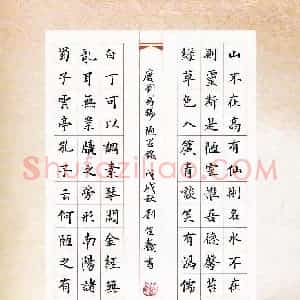 山不在高有仙則名水不在
則靈斯是陋室惟吾德馨苔
綠草色入簾青談笑有鴻儒
唐劉禹錫陋室銘戊戌秋劉書
白丁可以調素琴閱金經無
亂耳無案牘之勞形南陽諸
蜀子雲亭孔子云何陋之有
Shufaziliao.COM